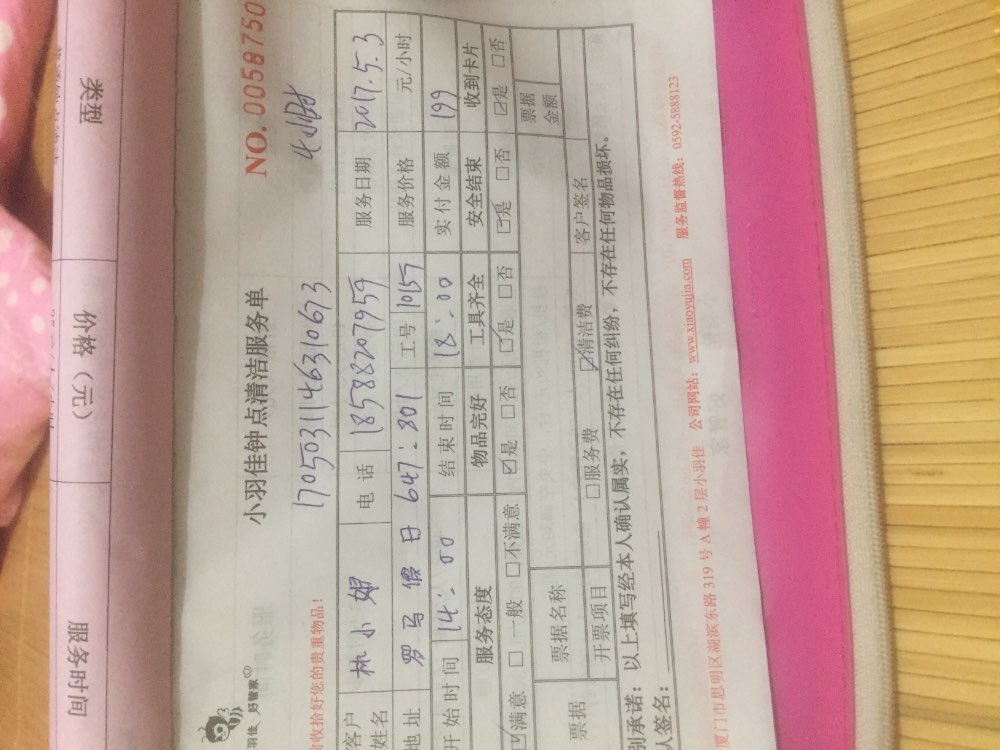 类型
价格（元）
服务时间
羽佳 好管家
小羽佳钟点清洁服务单
NO. 0058750
收拾好您的贵重物品！
1705031146310673
4小时
客户姓名 林小姐 电话 18588207959 服务日期 2017.5.3
地址 罗马假日 647:801 工号 10159 服务价格 元/小时
开始时间 14:00 结束时间 18:00 实付金额 199
服务态度 物品完好 工具齐全 安全结束 收到卡片
☑满意 □一般 □不满意 ☑是 □否 ☑是 □否 ☑是 □否 ☑是 □否
票据 票据名称 票据金额
开票项目 □服务费 ☑清洁费 客户签名
别承诺：以上填写经本人确认属实，不存在任何纠纷，不存在任何物品损坏。
人签名：
厦门市思明区湖滨东路 319 号 A 幢 2 层小羽佳 公司网站：www.xiaoyujia.com 服务监督热线：0592-5888123